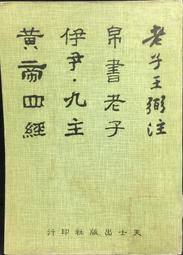 老子王弼注
帛書老子
伊尹·九主
黃帝四經
天士出版社印行